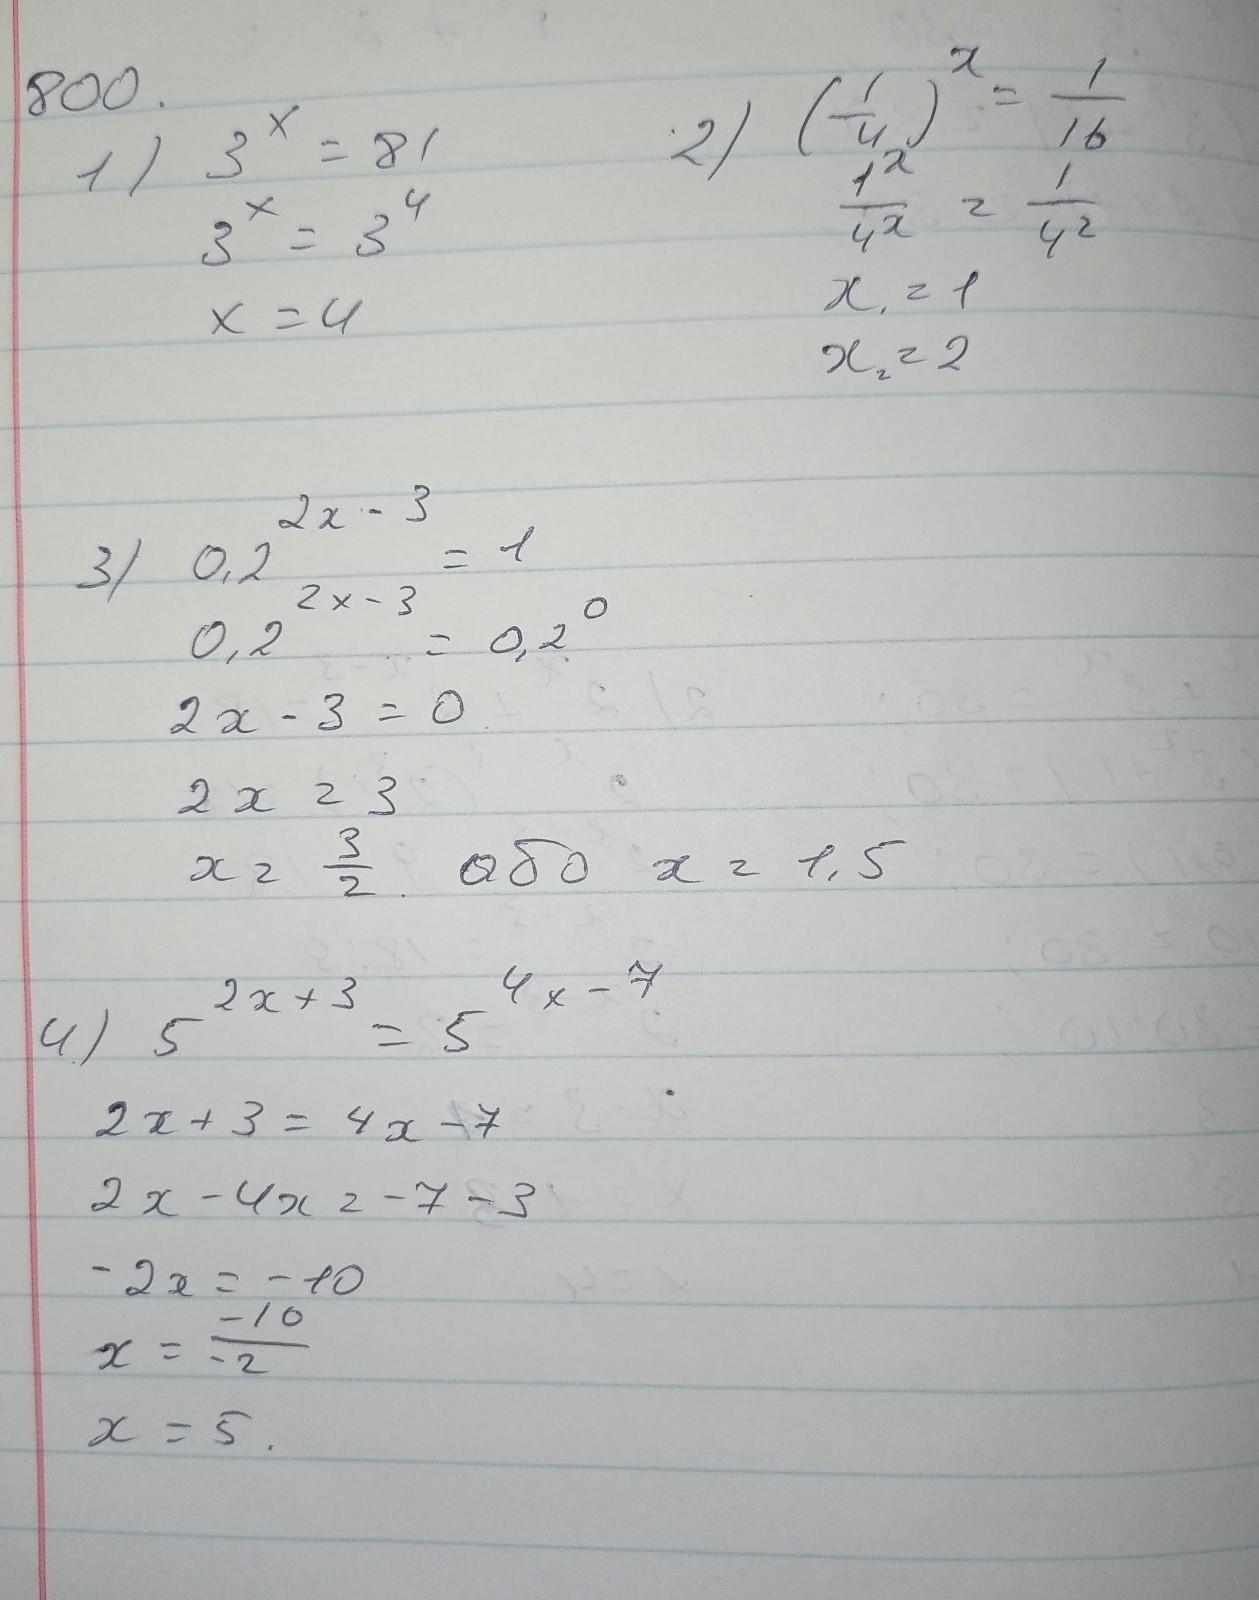 800.
1) 3^x = 81
3^x = 3^4
x = 4
2) (1/4)^x = 1/16
1^x/4^x = 1/4^2
x₁ = 1
x₂ = 2
3) 0,2^(2x-3) = 1
0,2^(2x-3) = 0,2^0
2x - 3 = 0
2x = 3
x = 3/2. або x = 1,5
4) 5^(2x+3) = 5^(4x-7)
2x + 3 = 4x - 7
2x - 4x = -7 - 3
-2x = -10
x = -10/-2
x = 5.